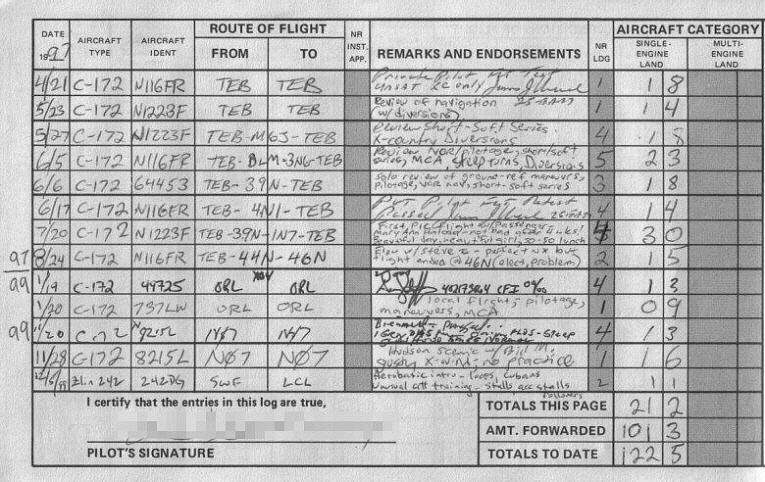 DATE 1997 AIRCRAFT TYPE AIRCRAFT IDENT ROUTE OF FLIGHT FROM TO NR INST. APP. REMARKS AND ENDORSEMENTS NR LDG AIRCRAFT CATEGORY SINGLE-ENGINE LAND MULTI-ENGINE LAND
4/21 C-172 N116FR TEB TEB Private Pilot Test UNSAT only 1 1 8
5/23 C-172 N1223F TEB TEB Review of navigation (w/diversions) 1 1 4
5/27 C-172 N1223F TEB-N63-TEB Review Short-Soft Series. X-country Diversions 4 1 8
6/5 C-172 N116FR TEB-BLM-3N6-TEB Review VOR/pilotage, short/soft series, MCA steep turns, Diversions 5 2 3
6/6 C-172 64453 TEB-39N-TEB Solo review of ground-ref maneuvers, pilotage, VOR nav, short-soft series 3 1 8
6/17 C-172 N116FR TEB-4N1-TEB Pvt Pilot Retest Passed 4 1 4
7/20 C-172 N1223F TEB-39N-1N7-TEB First PIC flight w/Passenger Mary Ann not bad after Beautiful day, beautiful girl, so-so lunch 4 3 0
97 8/24 C-172 N116FR TEB-44N-46N Flew w/Steve perfect wx but flight ended @ 46N (elect. problem) 2 1 5
99 1/19 C-172 44725 ORL ORL CFI 4 1 3
1/20 C-172 737LW ORL ORL local flight, pilotage, maneuvers, MCA 1 0 9
99 11/20 C-172 N8215L N07 N07 Steep 4 1 3
11/28 C-172 8215L N07 N07 Hudson Scenic w/Bill M. gusty X-W-N-no practice 1 1 6
12/5/99 Zlin 242 242DG SWF LCL Aerobatic intro - loops, Cubans Unusual att training - stalls acc stalls 2 1 1
I certify that the entries in this log are true,
TOTALS THIS PAGE 21 2
AMT. FORWARDED 101 3
PILOT'S SIGNATURE
TOTALS TO DATE 122 5